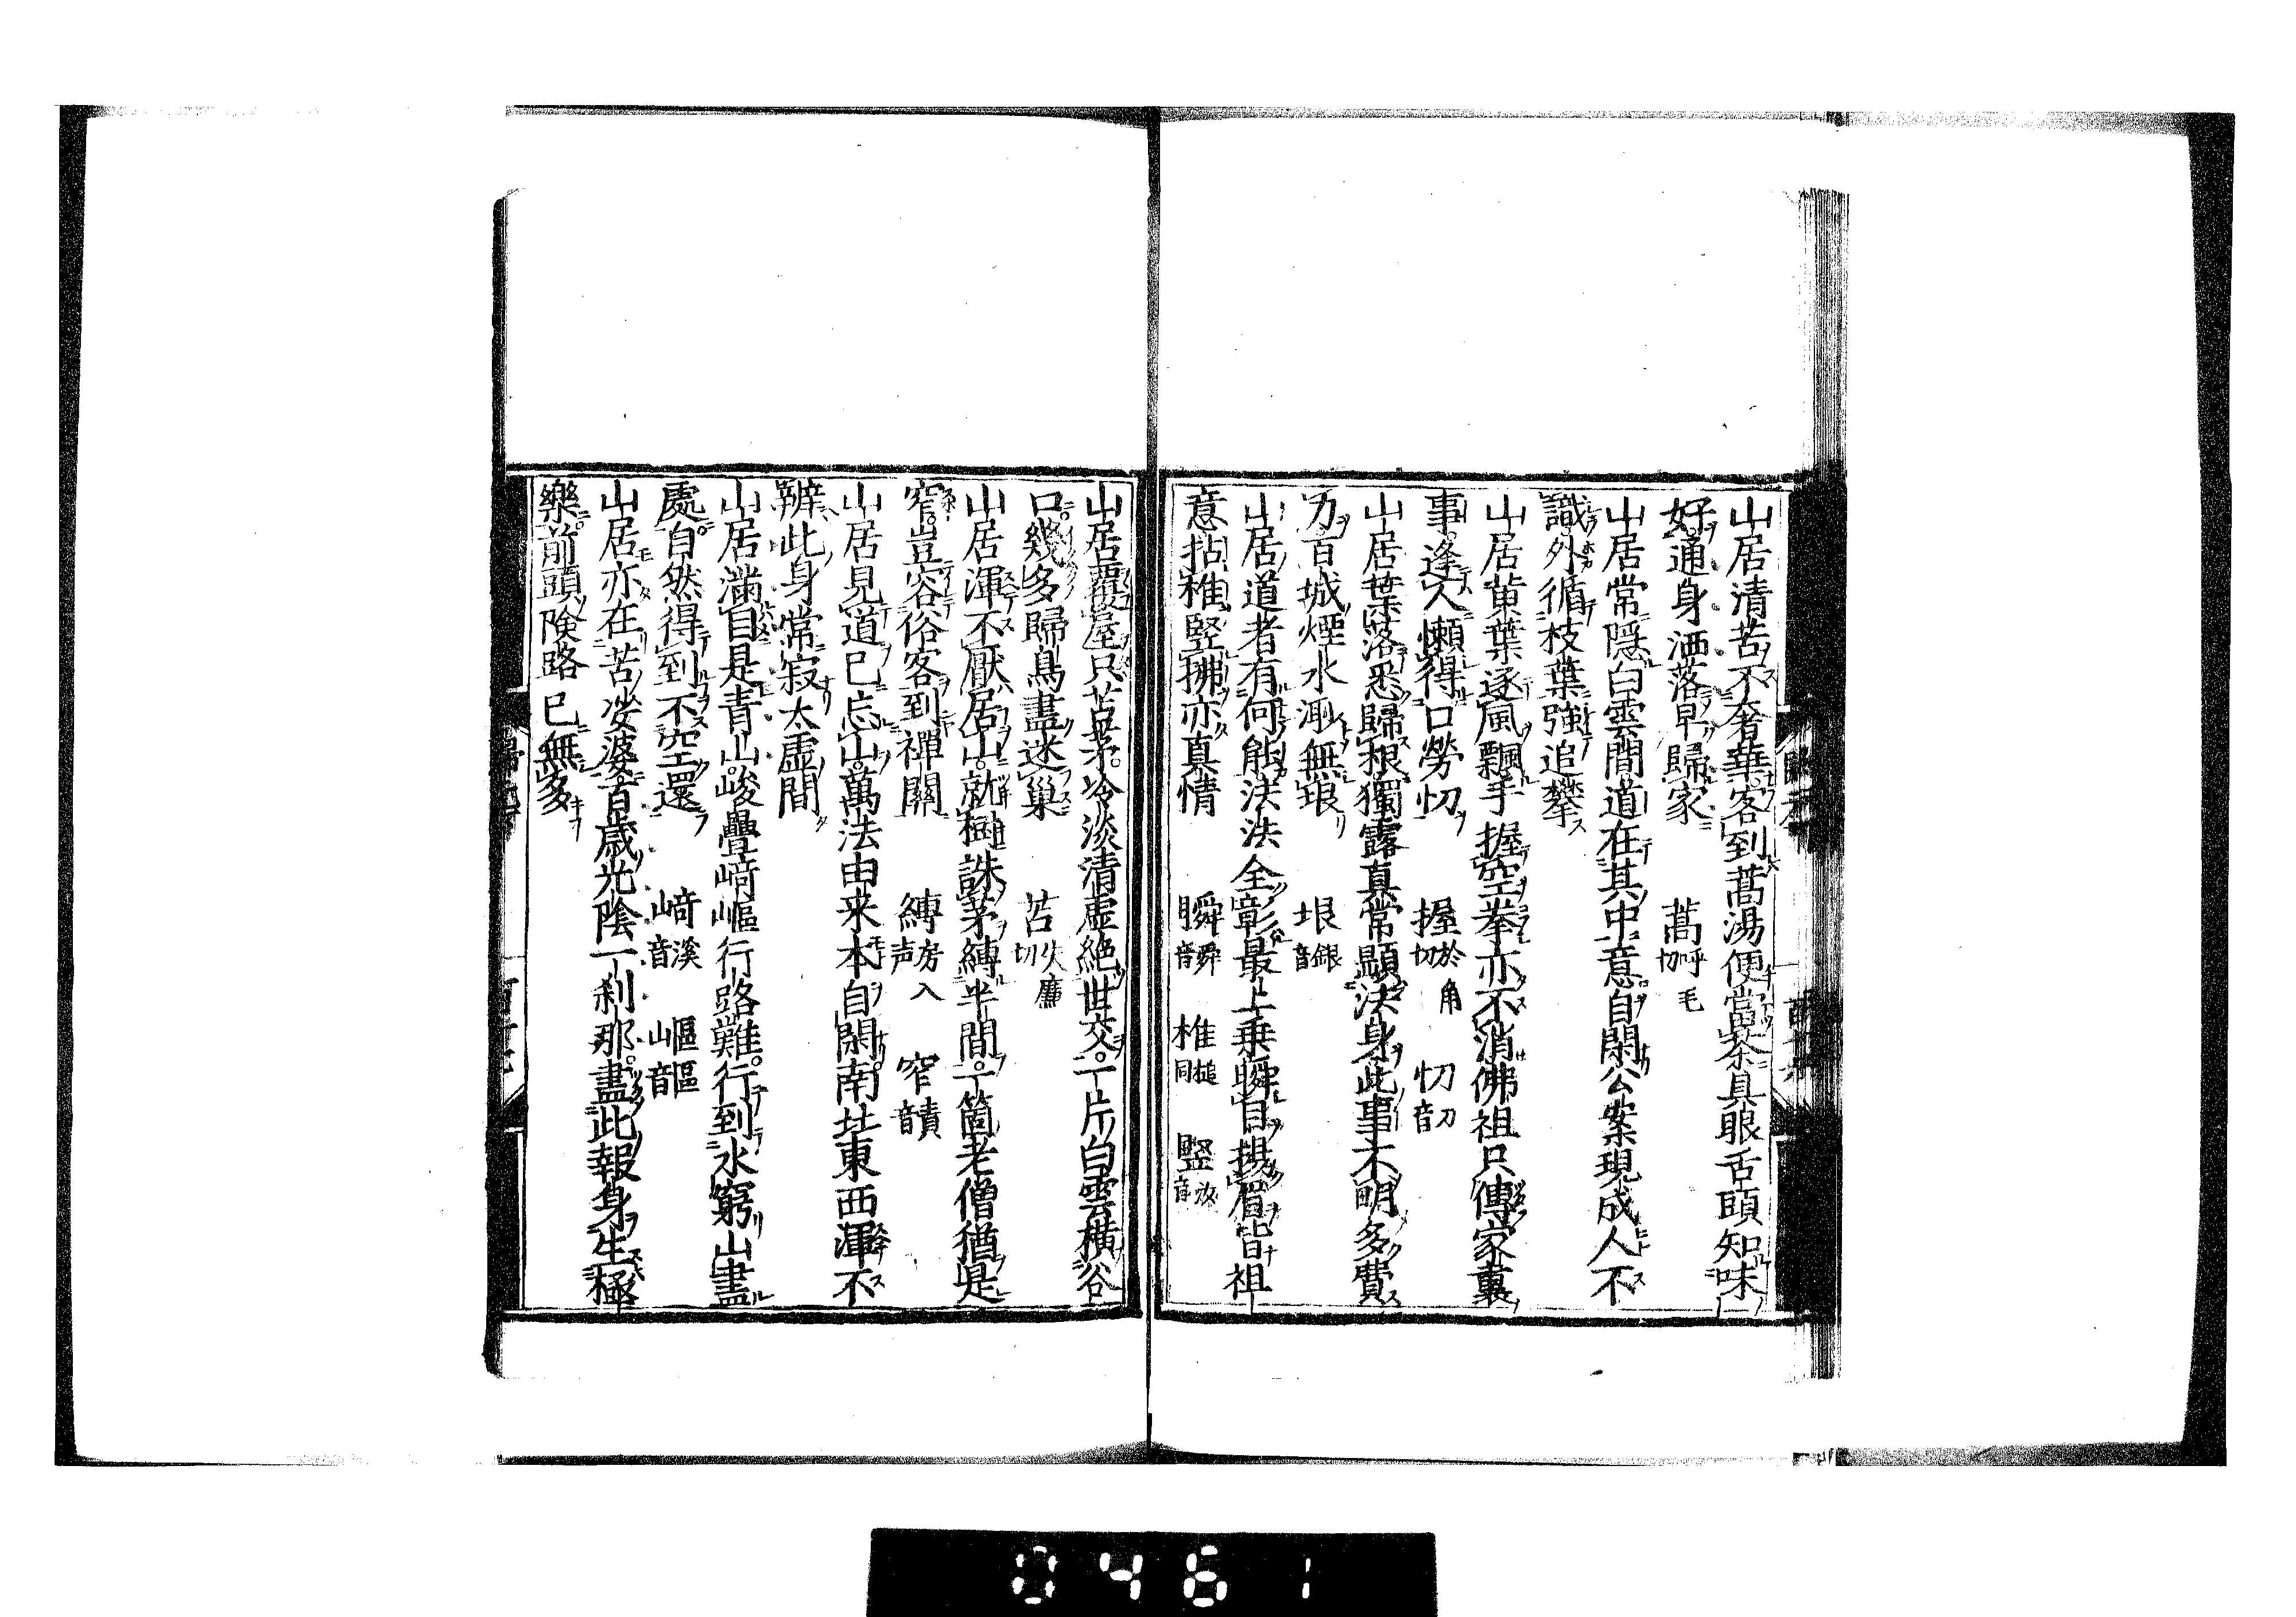 山居清苦不奢華客到蒿湯便當茶具眼舌頭知味
好通身洒落早歸家 蒿呼毛切
山居常隠白雲間道在其中意自閑公案現成人不
識外循枝葉強追攀
山居黄葉逐風飄手握空拳亦不消佛祖只傳家裏
事逢人懶得口勞忉 握於角切 忉音刀
山居葉落悉歸根獨露真常顯法身此事不明多費
力百城煙水渺無垠 垠音銀
山居道者有何能法法全彰最上乗瞬目揚眉皆祖
意拈椎竪拂亦真情 瞬音舜 椎同槌 竪音
山居覆屋只苫茅冷淡清虚絶世交一片白雲横谷
口幾多歸鳥盡迷巢 苫失廉切
山居渾不厭居山就樹誅茅縛半間一箇老僧猶是
窄豈容俗客到禪關 縛房入声 窄音責
山居見道已忘山萬法由来本自閑南北東西渾不
辨此身常寂太虚間
山居滿目是青山峻疊崎嶇行路難行到水窮山盡
處自然得到不空還 崎音溪 嶇音區
山居亦在苦娑婆百歳光陰一刹那盡此報身生極
樂前頭険路已無多
0461